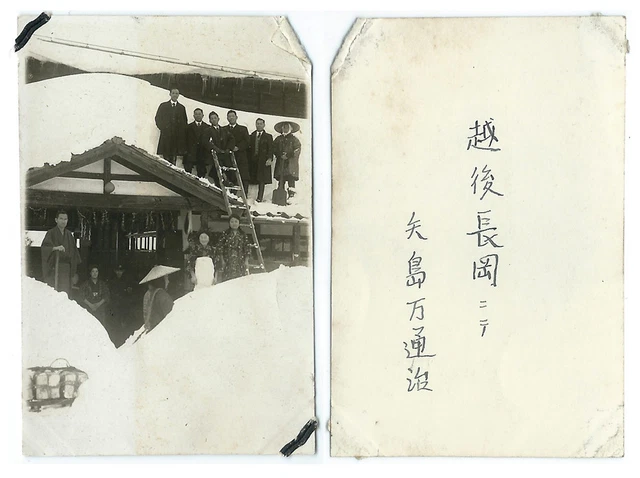 越後長岡ニテ
矢島万通治